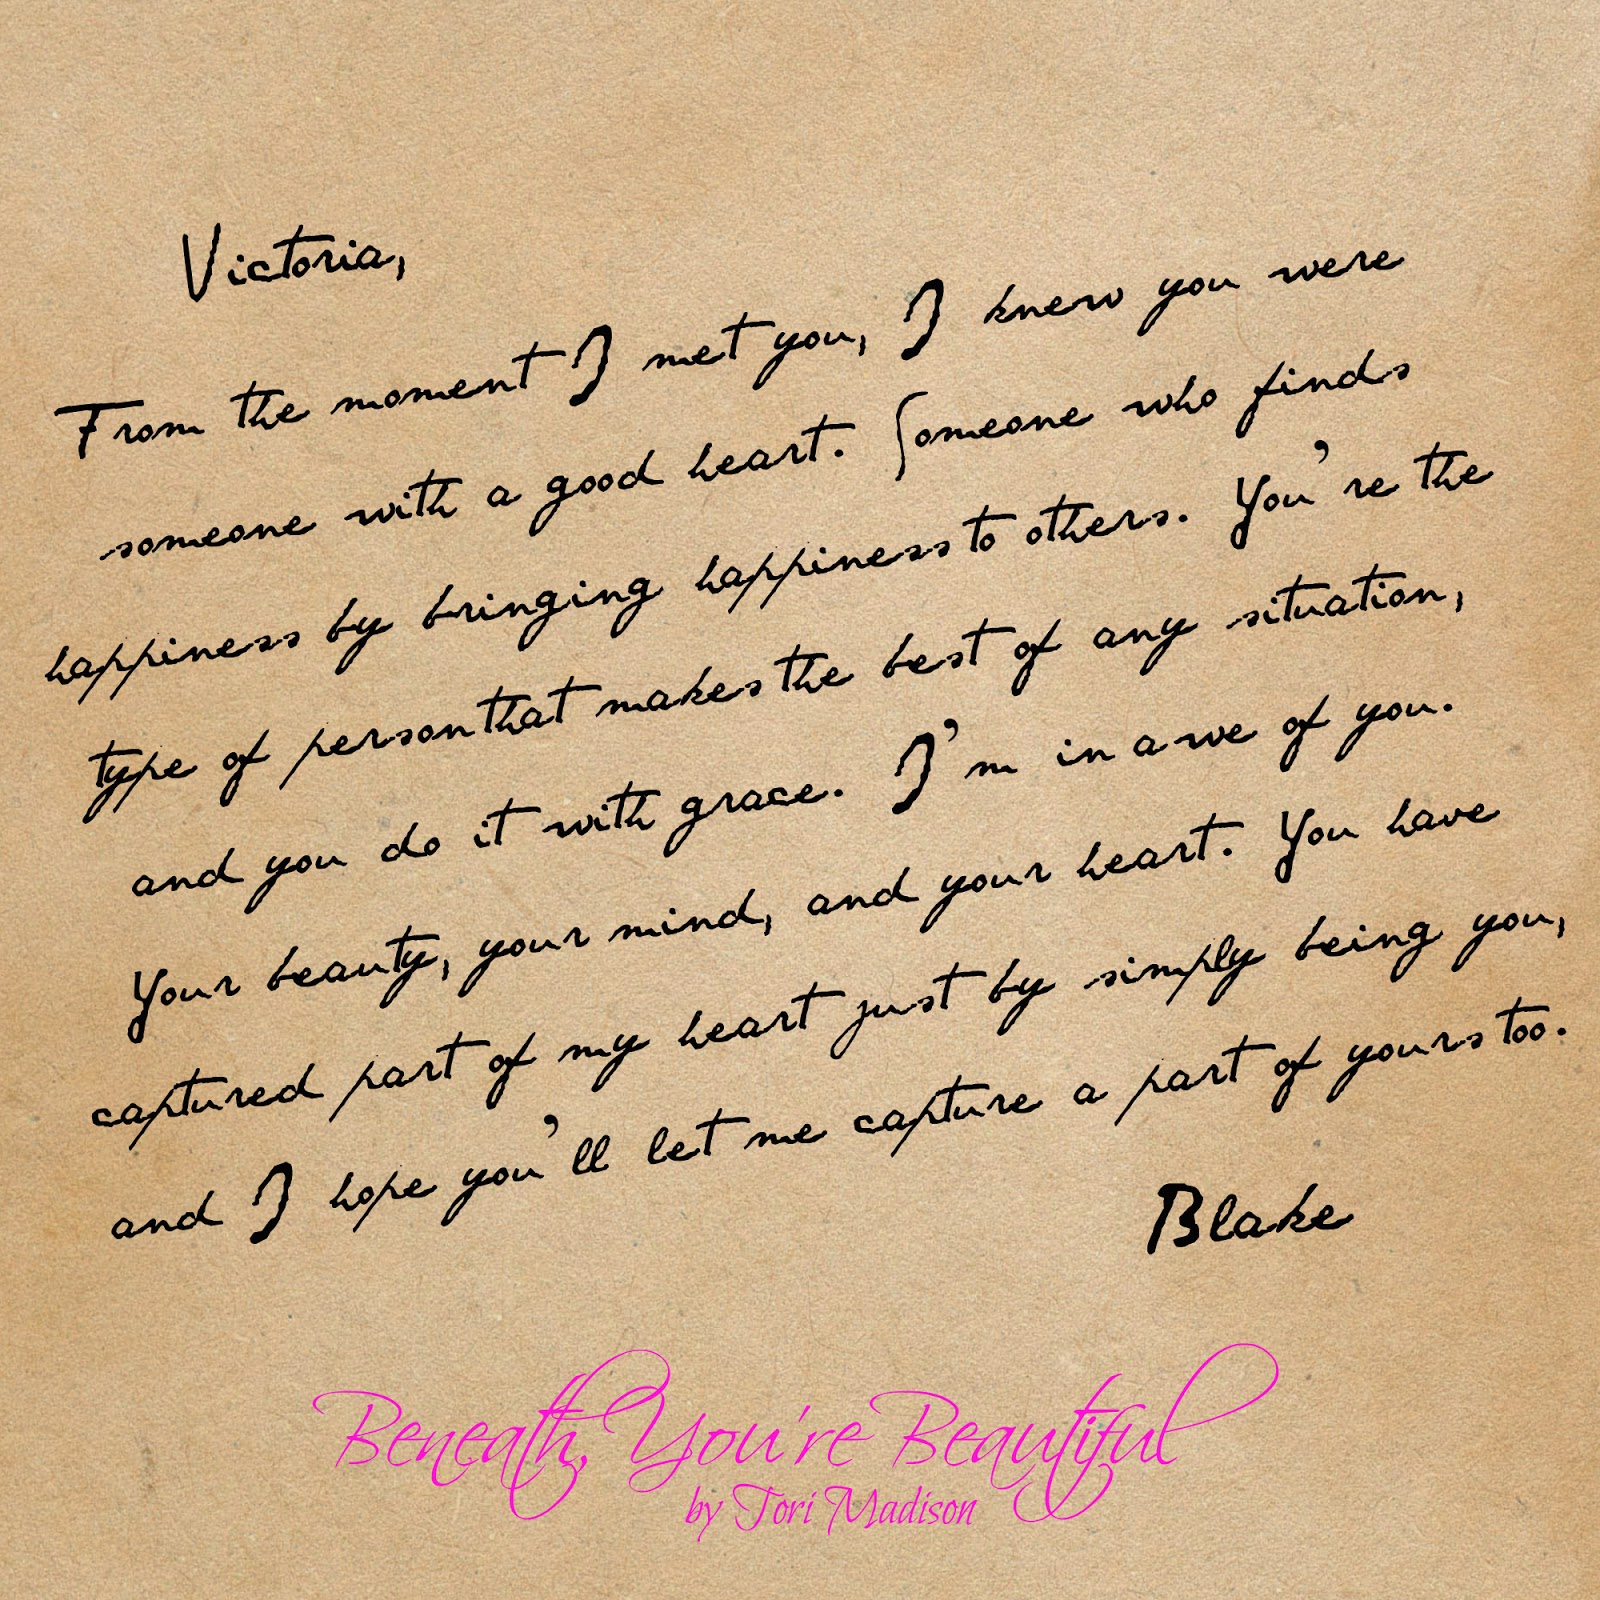 Victoria,
From the moment I met you, I knew you were
someone with a good heart. Someone who finds
happiness by bringing happiness to others. You're the
type of person that makes the best of any situation,
and you do it with grace. I'm in awe of you.
Your beauty, your mind, and your heart. You have
captured part of my heart just by simply being you,
and I hope you'll let me capture a part of yours too.
Blake
Beneath, You're Beautiful
by Tori Madison